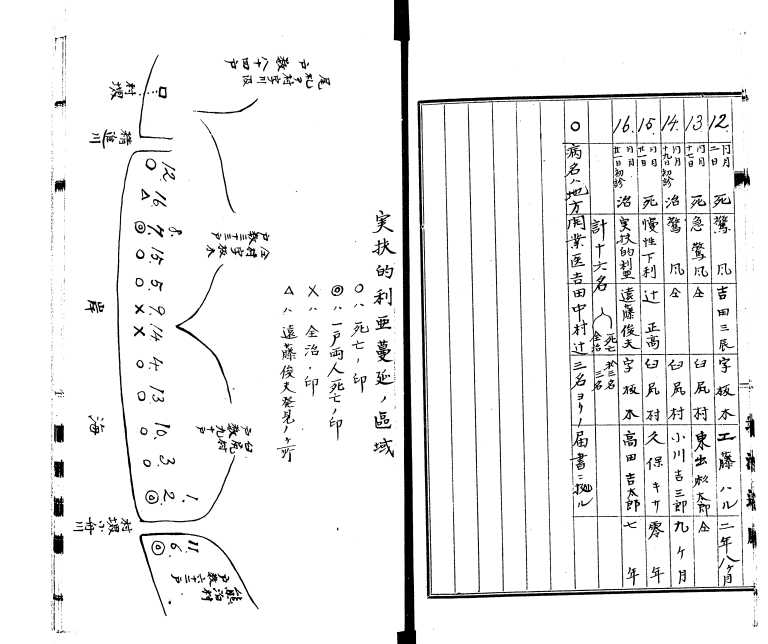 12. 同月二日 死 驚凡 吉田三辰 字板木 工藤ハル 二年八ヶ月
13. 同月十七日 死 急驚凡 仝 臼尻村 東出松太郎 仝
14. 同月十九日初診 治 驚凡 仝 臼尻村 小川吉三郎 九ヶ月
15. 同月廿一日 死 慢性下利 辻正高 臼尻村 久保キサ 零年
16. 同月廿一日初診 治 実扶的利亜 遠藤俊夫 字板木 高田吉太郎 七年
計十六名 死亡 拾三名
全治 三名
○ 病名ハ地方開業医吉田中村辻三名ヨリノ届書ニ拠ル
実扶的利亜蔓延ノ區域
○ハ死亡ノ印
◎ハ一戸両人死亡ノ印
×ハ全治ノ印
△ハ遠藤俊夫発見ノヶ所
尾札部村字川汲
戸数八十四戸
村堺
精進川
仝村字板木
戸数三十三戸
臼尻村
戸数九十戸
熊泊村
戸数六十三戸
12. ○
16. △
8. 7. ◎
15. ○
5. ○
9. ×
14. ×
4. ○
13. ○
10. ○
3. ○
1. 2. ◎
11. 6. ◎
海岸